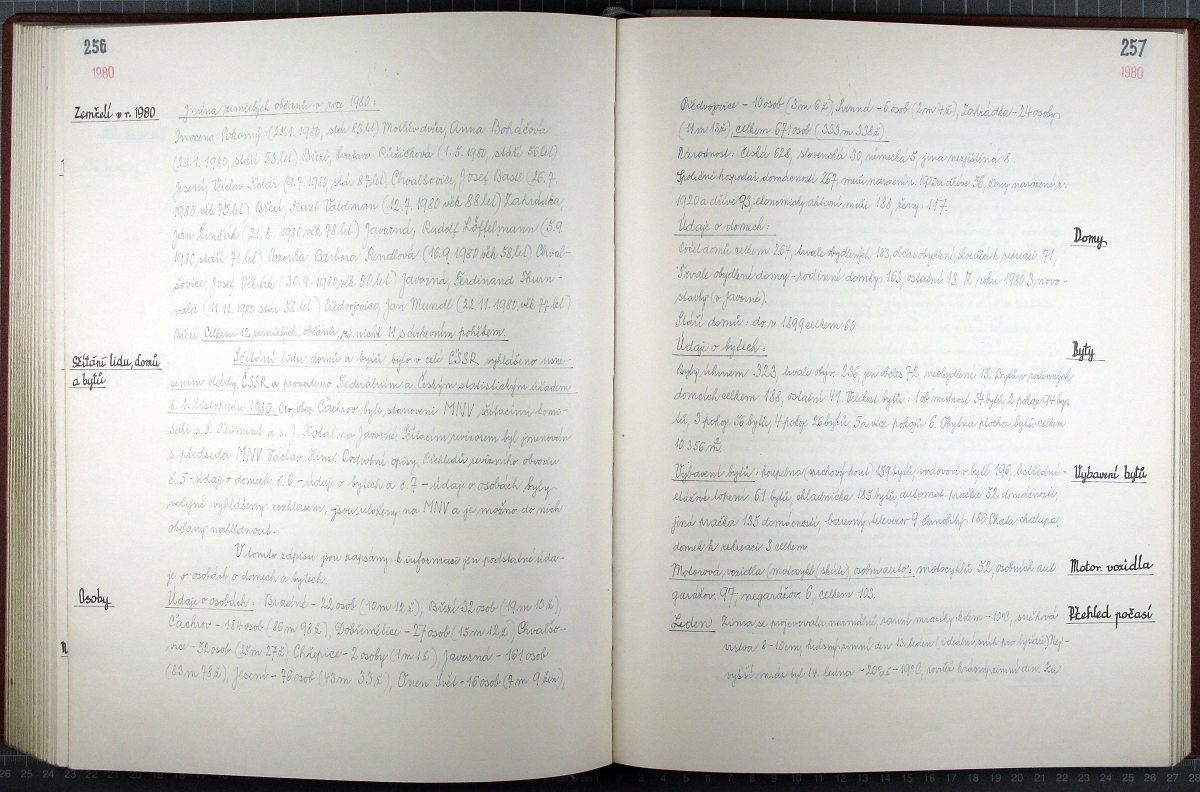 256
1980
Zemřelí v r. 1980
Jména zemřelých občanů v roce 1980:
Inocenc Pokorný (24.1. 1980, stár 83 let) dvůr, Anna Boháčová
(24.1. 1980, stáří 53 let) Březí, Růžičková (1.5. 1980, stáří 56 let)
Jesení, Václav Kolář (9.7. 1980, stár 87 let) Chvalšovice, Josef Bastl (26.7.
1980 věk 75 let) Březí, Karel Valdman (12.7. 1980 věk 88 let) Zahrádka,
Ján Žinčák (21.8. 1980 věk 78 let) Javorná, Rudolf Löffelmann (5.9.
1980, stáří 71 let) Barbora Rendlová (16.9. 1980 věk 58 let) Chval-
šovice, Josef (30.9. 1980 věk 50 let) Javorná, Ferdinand Thurn-
vald (11.11. 1980 stár 58 let) Předvojovice, Jan Mundl (22.11. 1980, věk 77 let)
Březí. Celkem 12 zemřelých občanů, z nichž 11 s církevním pohřbem.
Sčítání lidu, domů
a bytů
Sčítání lidu, domů a bytů bylo v celé ČSSR vyhlášeno usne-
sením vlády ČSSR a provedeno Federálním a Českým statistickým úřadem
k 1. listopadu 1980. Pro obec Čachrov byli stanoveni MNV sčítacími komi-
saři s. P. Kliment a s. J. Kotál na Javorné. Sčítacím revizorem byl jmenován
s. předseda MNV Václav Hinz. Podrobné opisy Přehledů revizního obvodu
č. 5 - údaje o domech č. 6 - údaje o bytech a č. 7 - údaje o osobách byly
veřejně vyhlášeny rozhlasem, jsou uloženy na MNV a je možno do nich
občany nahlédnout.
V tomto zápisu jsou zapsány k informaci jen podstatné úda-
je o osobách o domech a bytech.
Osoby
Údaje o osobách: Bradné - 22 osob (10 m 12 ž), Březí 32 osob (19 m 13 ž),
Čachrov - 184 osob (86 m 98 ž), Dobřemilice - 27 osob (15 m 12 ž) Chvalšo-
vice - 52 osob (25 m 27 ž) Chřepice - 2 osoby (1 m 1 ž), Javorná - 161 osob
(83 m 78 ž), Jesení - 76 osob (43 m 33 ž), Onen Svět - 16 osob (7 m 9 žen),
257
1980
Předvojovice - 10 osob (3 m 6 ž), Svinná - 6 osob (2 m 4 ž), Zahrádka - 24 osoby
(11 m 13 ž), celkem 671 osob (333 m 338 ž)
Národnost: Česká 628, slovenská 30, německá 5, jiná nezjištěná 8.
Společně hospodař. domácností 267, muži narození r. 1920 a dříve 56, ženy narozené r.
1920 a dříve 93, ekonomicky aktivní muže 188, ženy 117.
Domy
Údaje o domech:
Počet domů celkem 267, trvale obydlených 183, občas obydlené sloužících rekreaci 71,
Trvale obydlené domy - rodinné domky: 163, ostatní 18. Z roku 1980 3 novo-
stavby (v Javorné).
Stáří domů: do r. 1899 celkem 60
Byty
Údaje o bytech:
Byty úhrnem 323, trvale obyv. 236, jen občas 72, neobydlené 15. Bytů v rodinných
domcích celkem 188, ostatní 41. Velikost bytů: 1 ob. místnost 34 bytů, 2 pokoje 94 by-
tů, 3 pokoje 76 bytů, 4 pokoje 26 bytů 5 a více pokojů 6. Obytná plocha bytů celkem
10 356 m².
Vybavení bytů
Vybavení bytů: koupelna (sprchový kout) 159 bytů, vodovod v bytě 196, ústřední -
etážové topení 61 bytů, chladnička 185 bytů automat. pračka 52 domácností,
jiná pračka 135 domácností, barevný televizor 9 černobílý 186. Chata, chalupa,
domek k rekreaci 8 celkem.
Motor. vozidla
Motorová vozidla (motocykl (skútr), osobní auto: motocyklů 52, osobních aut
garážov. 97, negarážov. 6, celkem 103.
Přehled počasí
Leden Zima se projevovala normálně, ranní mrazíky kolem - 10°C, sněhová
vrstva 8 - 10 cm, krásný zimní den 13. leden (ideální sníh pro lyžaře). Nej-
vyšší mráz byl 14. ledna - 20°C - 19°C, krásný zimní den.